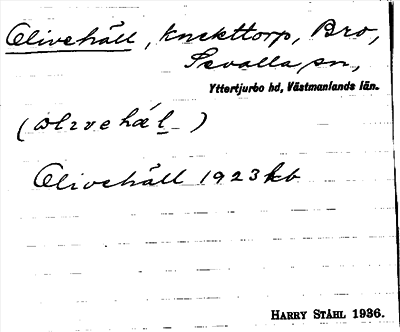 Olivehäll, Knekttorp, Bro,
Sevalla sn,
Yttertjurbo hd, Västmanlands län.
Olivehäll 1923 kb
HARRY STÅHL 1936.